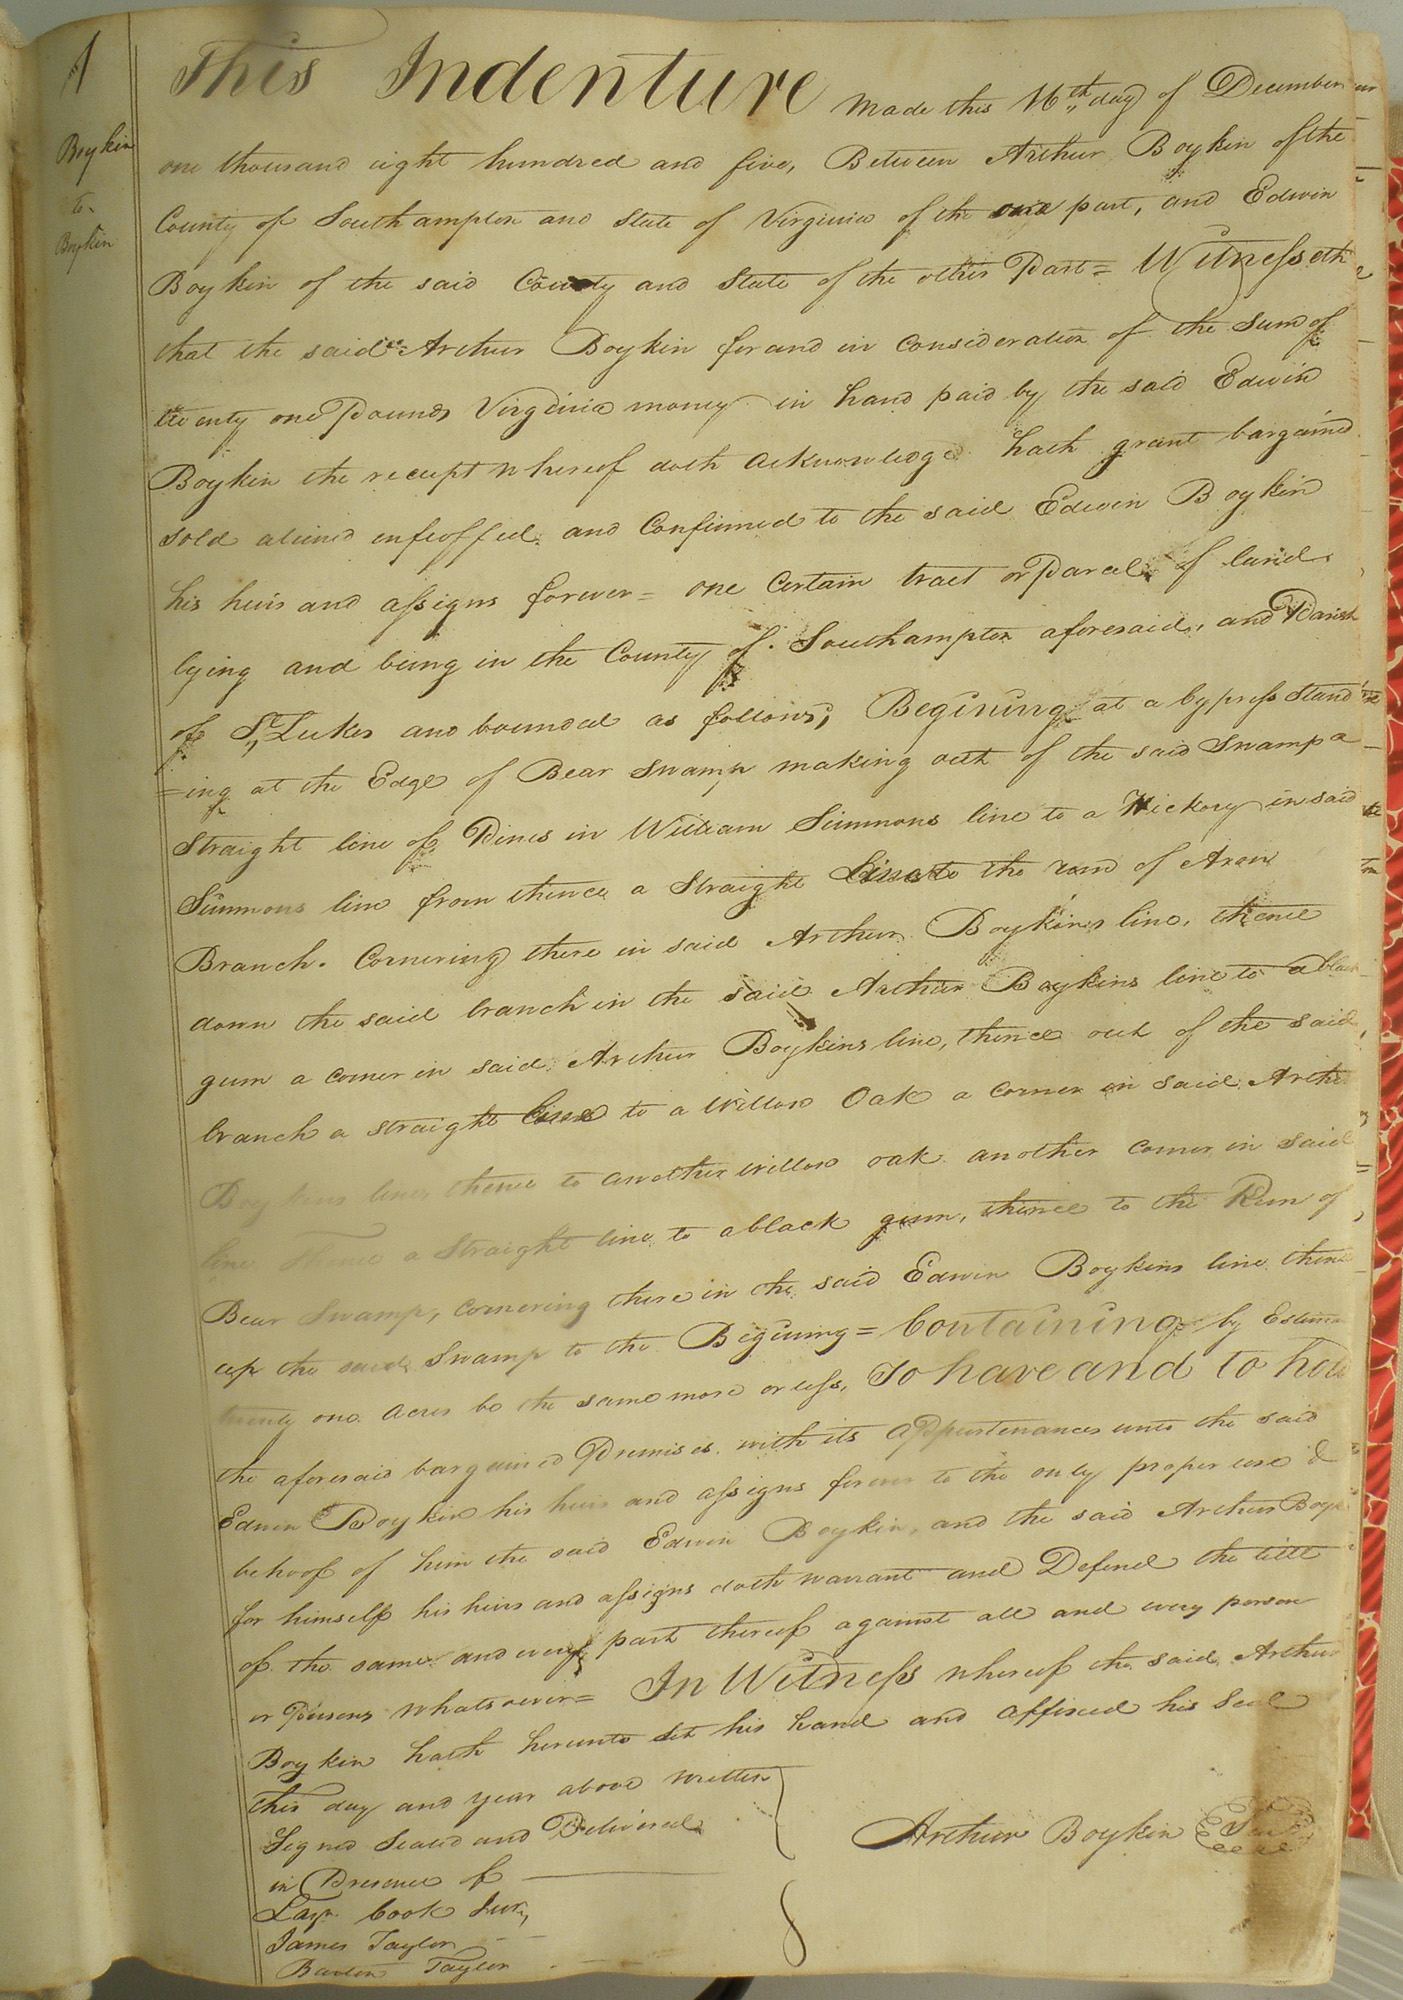 1
Boykin
to
Boykin
This Indenture Made this 16th day of December
one thousand eight hundred and five, Between Arthur Boykin of the
County of Southampton and State of Virginia of the one part, and Edwin
Boykin of the said County and State of the other Part = Witnesseth
that the said Arthur Boykin for and in consideration of the Sum of
twenty one Pounds Virginia money in hand paid by the said Edwin
Boykin the receipt whereof doth acknowledge hath grant bargained
sold aliened enfeoffed and Confirmed to the said Edwin Boykin
his heirs and assigns forever = one Certain tract or Parcel of land
lying and being in the County of Southampton aforesaid, and Parish
of St Lukes and bounded as follows; Begining at a Cypress Stand
=ing at the Edge of Bear Swamp making out of the said Swamp a
Straight line of Pines in William Simmons line to a Hickory in said
Simmons line from thence a Straight Line to the run of
Branch. Cornering there in said Arthur Boykins line, thence
down the said branch in the said Arthur Boykins line to a black
gum a corner in said Arthur Boykins line, thence out of the said
branch a straight Line to a Willow Oak a corner in said Arthur
Boykins line thence to another willow oak another corner in said
line Thence a Straight line to a black gum, thence to the Run of
Bear Swamp, cornering there in the said Edwin Boykins line thence
up the said Swamp to the Begining = Containing by Estima
twenty one acres be the same more or less, To have and to hold
the aforesaid bargained Premises with its appurtenances unto the said
Edwin Boykin his heirs and assigns forever to the only proper use &
behoof of him the said Edwin Boykin, and the said Arthur Boyk
for himself his heirs and assigns doth warrant and Defend the title
of the same and every part thereof against all and every person
or Persons whatsoever = In Witness whereof the said Arthur
Boykin hath hereunto set his hand and affixed his Seal
this day and year above written
Signed Sealed and Delivered
in Presence of
Arthur Boykin Seal
Cook Jur,
James Taylor
Taylor